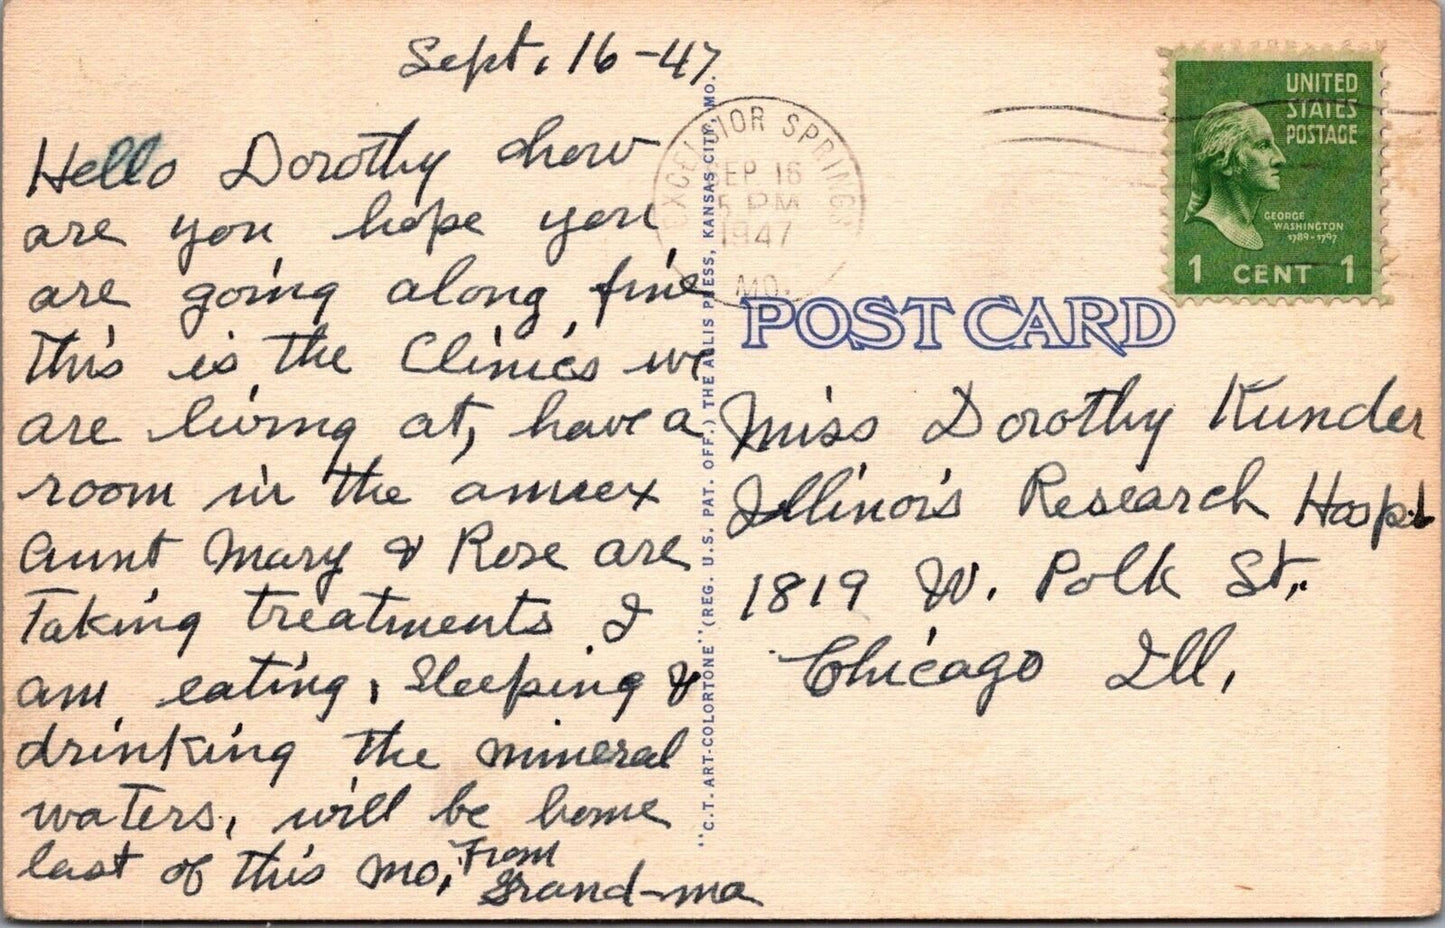 Sept. 16-47
Hello Dorothy how
are you hope you
are going along fine
This is the Clinics we
are living at, have a
room in the annex
Aunt Mary & Rose are
Taking treatments I
am eating, Sleeping &
drinking the mineral
waters, will be home
last of this mo, From
Grand-ma
"C.T. ART-COLORTONE" (REG. U.S. PAT. OFF.) THE ALLIS PRESS, KANSAS CITY, MO.
EXCELSIOR SPRINGS
SEP 16
5 PM
1947
MO.
UNITED
STATES
POSTAGE
GEORGE
WASHINGTON
1789-1797
1 CENT 1
POST CARD
Miss Dorothy Kunder
Illinois Research Hospt
1819 W. Polk St.,
Chicago Ill,